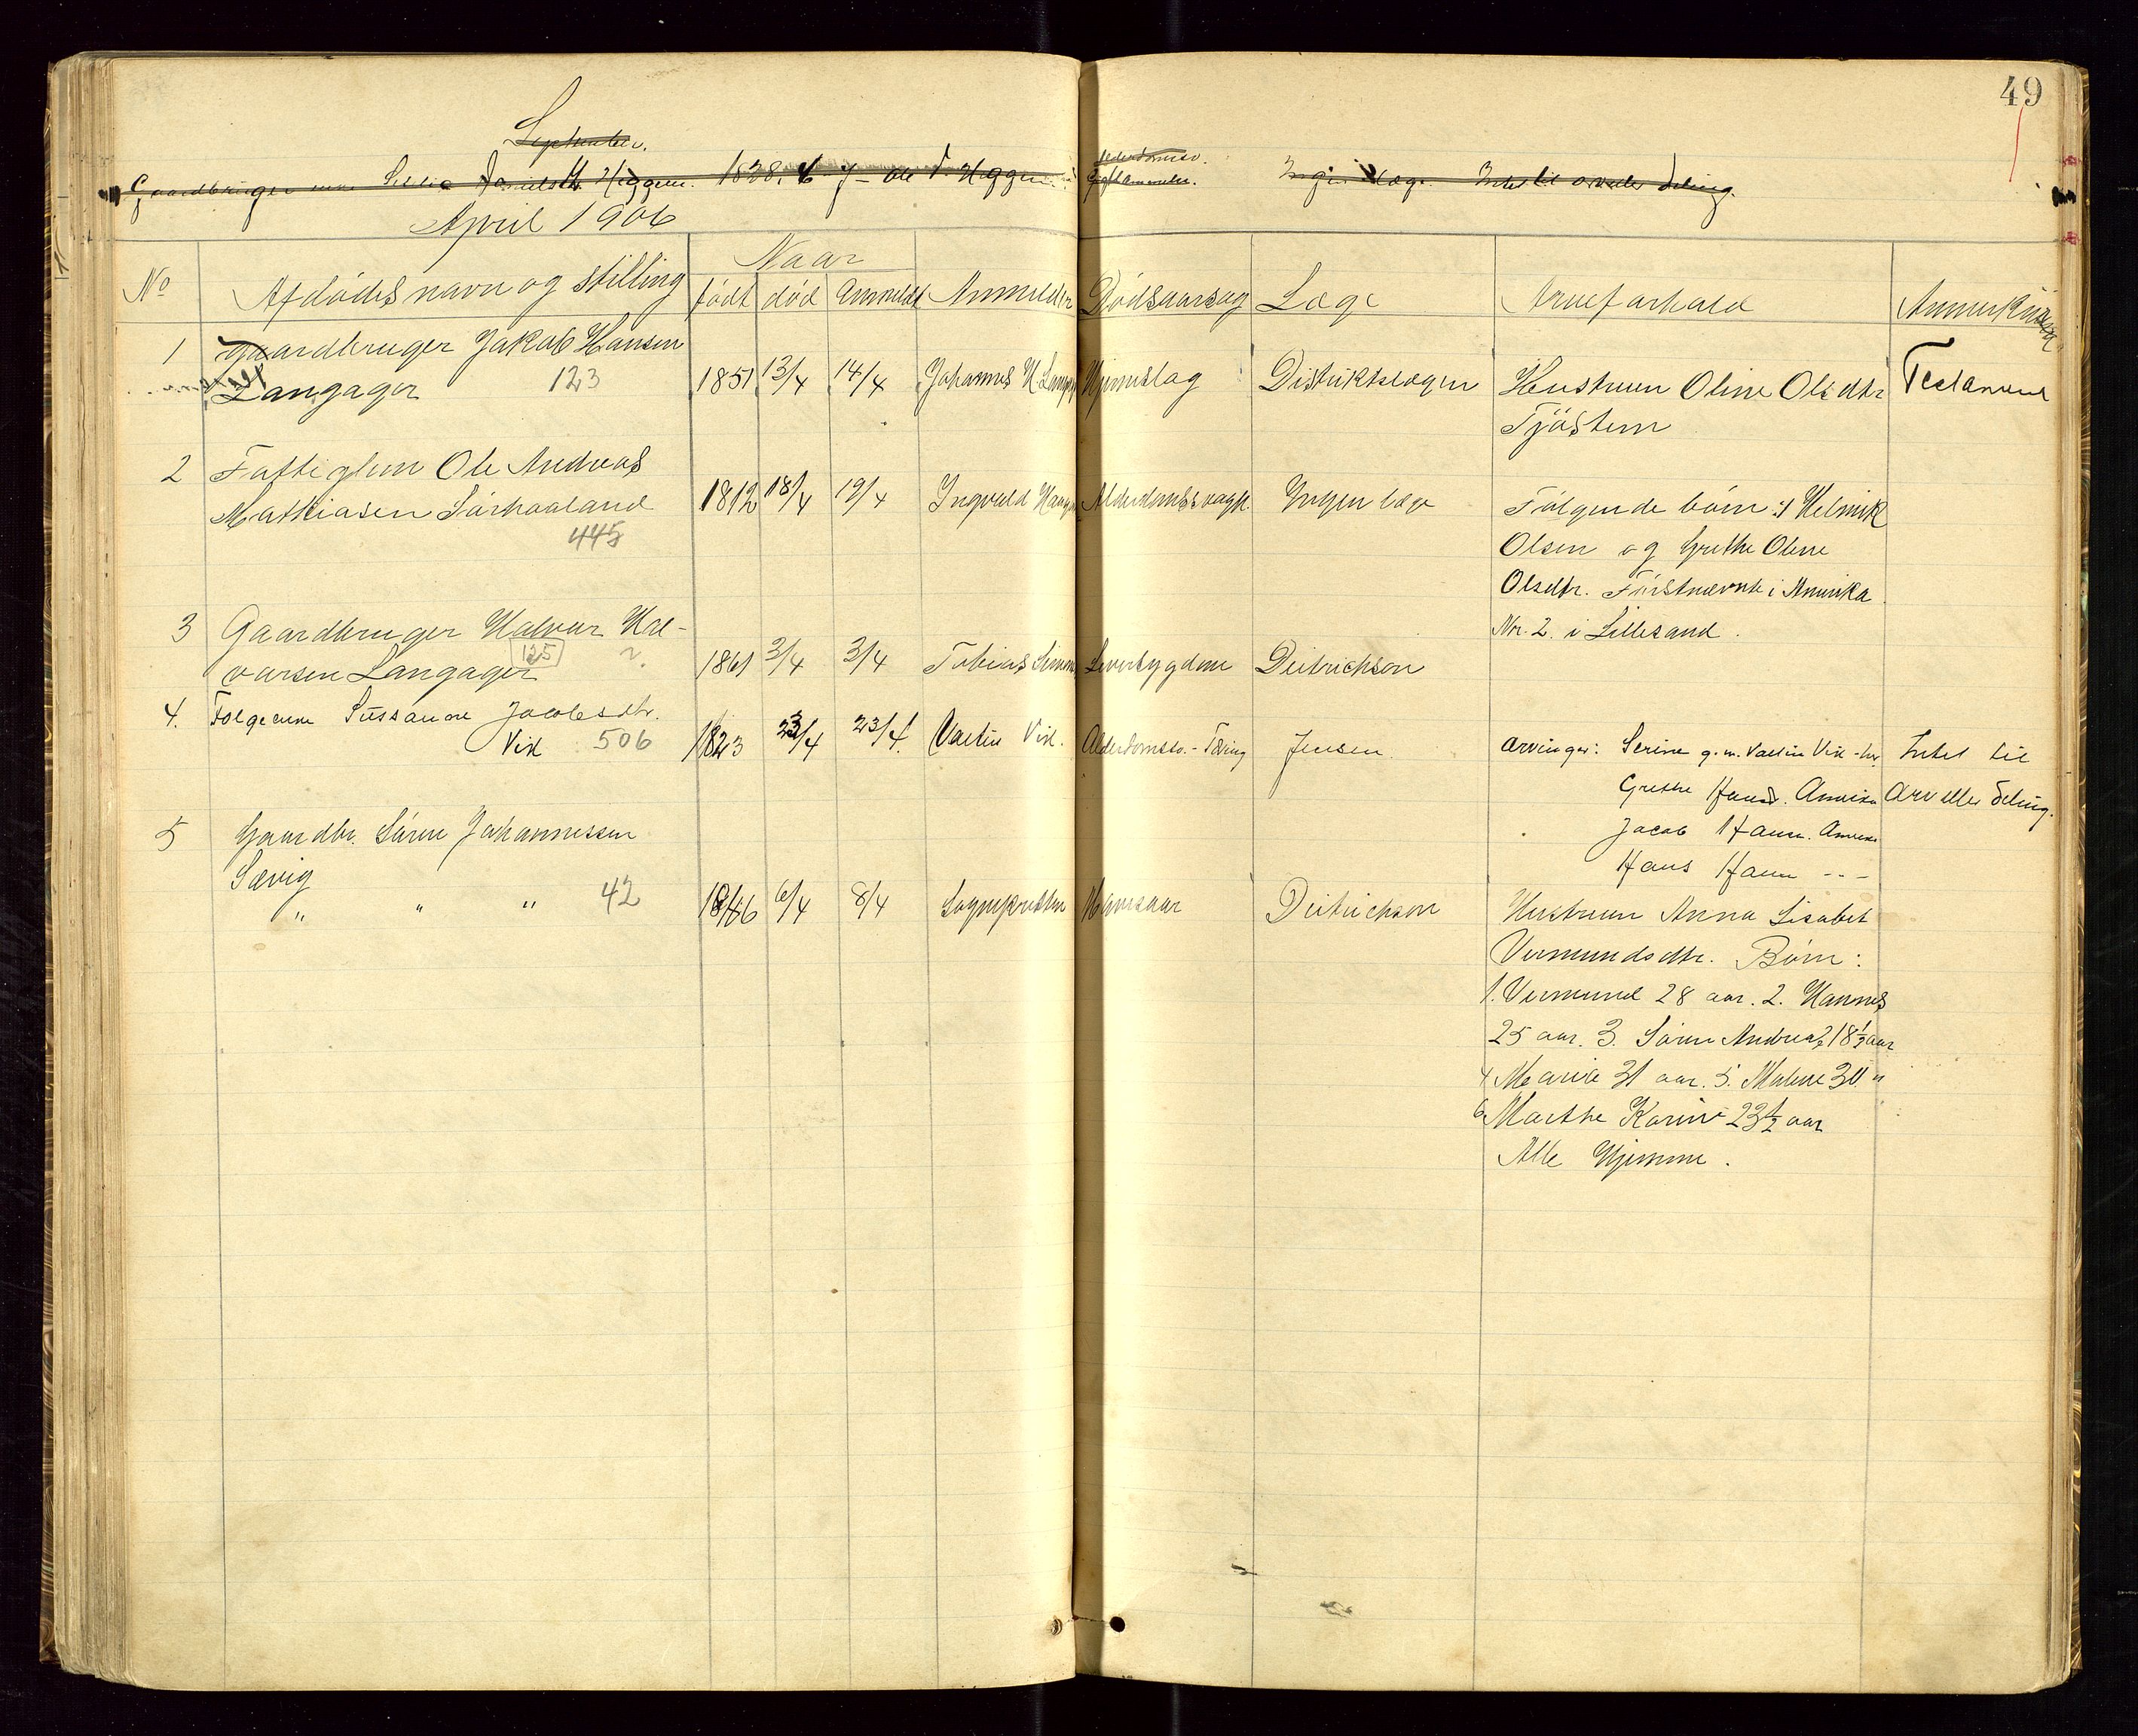 49
September.
Daniels Heggem. 1828. Heggem. Alderdomssv. Ingen læge. Intet til arv eller deling.
April 1906
Naar
No Afdødes navn og stilling født død Anmeldt Anmelder Dødsaarsag Læge Arveforhold Anmerkning
1 Gaardbruger Jakob Hansen
Langager 123 1851 13/4 14/4 Johannes H Hjerneslag Distriktslægen Hustruen Oline Olsdtr Testament
Tjöstem
2 Fattiglem Ole Andreas
Mathiasen Sörhaaland 1812 18/4 19/4 Ingvald Alderdomssvagh. Ingen læge Fölgende börn: 1 Helmik
445 Olsen og Grethe Oline
Olsdtr. Förstnævnte i Amerika
Nr. 2. i Lillesand.
3 Gaardbruger Halvar Hal-
varsen Langager 125 1861 2/4 3/4 Tobias Leversygdom Deitrichson
4. Folgeenke Sussanne Jacobsdtr.
Vik 506 1823 23/4 23/4. Vik. Alderdomssv. - Tæring Jensen. Arvinger: Serine g. m. Vik Intet til
Grethe Hansd. Amerika Arv eller deling.
Jacob Hansn. Amerika
Hans Hansn - - -
5 Gaardbr. Sören Johannessen
Sævig
" " " 42 6/4 8/4 Sogneprästen Deitrichson Hustruen Anna Lisabet
Vermundsdtr. Börn:
1. Vermund 28 aar. 2. Hannes
25 aar. 3. Sören Andreas 18 1/2 aar
4 Marie 31 aar. 5. Malene 30 "
6. Marthe Karine 23 1/2 aar
Alle Hjemme.